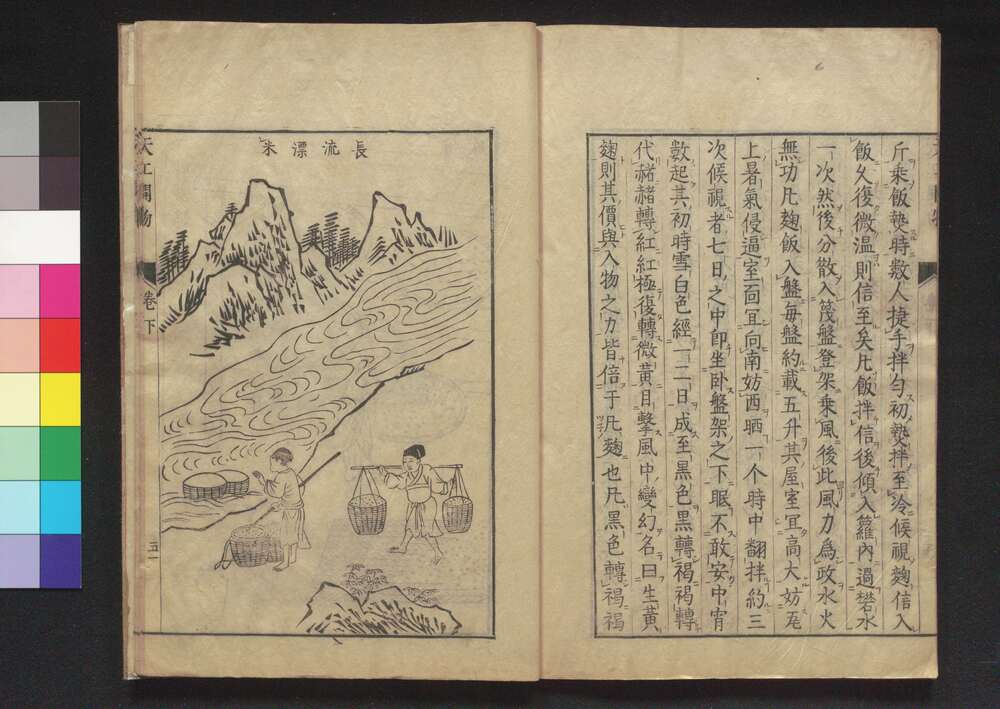 斤乘飯熱時數人捷手拌勻初熱拌至冷候視麴信入
飯久復微溫則信至矣凡飯拌信後傾入籮內過礬水
一次然後分散入篾盤登架乘風後此風力爲政水火
無功凡麴飯入盤每盤約載五升其屋室宜高大妨瓦
上暑氣侵逼室面宜向南妨西晒一个時中翻拌約三
次候視者七日之中即坐臥盤架之下眠不敢安中宵
數起其初時雪白色經一二日成至黑色黑轉褐褐轉
代赭赭轉紅紅極復轉微黃目擊風中變幻名曰生黃
麴則其價與入物之力皆倍于凡麴也凡黑色轉褐褐
長流漂米
天工開物
卷下
五一